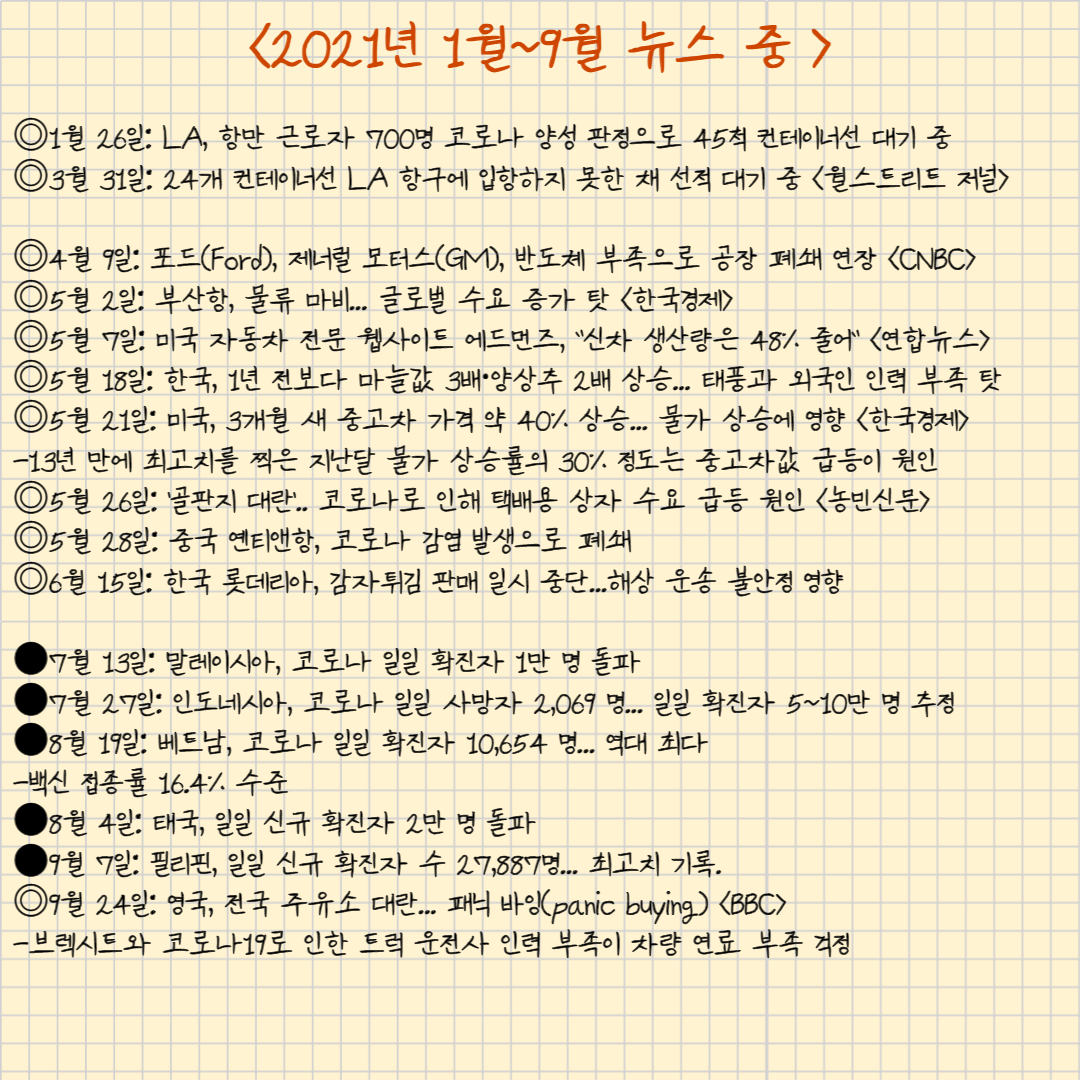 <2021년 1월~9월 뉴스 중 >
◎1월 26일: LA, 항만 근로자 700명 코로나 양성 판정으로 45척 컨테이너선 대기 중
◎3월 31일: 24개 컨테이너선 LA 항구에 입항하지 못한 채 선적 대기 중 <월스트리트 저널>
◎4월 9일: 포드(Ford), 제너럴 모터스(GM), 반도체 부족으로 공장 폐쇄 연장 <CNBC>
◎5월 2일: 부산항, 물류 마비... 글로벌 수요 증가 탓 <한국경제>
◎5월 7일: 미국 자동차 전문 웹사이트 에드먼즈, "신차 생산량은 48% 줄어" <연합뉴스>
◎5월 18일: 한국, 1년 전보다 마늘값 3배·양상추 2배 상승... 태풍과 외국인 인력 부족 탓
◎5월 21일: 미국, 3개월 새 중고차 가격 약 40% 상승... 물가 상승에 영향 <한국경제>
-13년 만에 최고치를 찍은 지난달 물가 상승률의 30% 정도는 중고차값 급등이 원인
◎5월 26일: '골판지 대란'.. 코로나로 인해 택배용 상자 수요 급등 원인 <농민신문>
◎5월 28일: 중국 옌티앤항, 코로나 감염 발생으로 폐쇄
◎6월 15일: 한국 롯데리아, 감자튀김 판매 일시 중단...해상 운송 불안정 영향
●7월 13일: 말레이시아, 코로나 일일 확진자 1만 명 돌파
●7월 27일: 인도네시아, 코로나 일일 사망자 2,069 명... 일일 확진자 5~10만 명 추정
●8월 19일: 베트남, 코로나 일일 확진자 10,654 명... 역대 최다
-백신 접종률 16.4% 수준
●8월 4일: 태국, 일일 신규 확진자 2만 명 돌파
●9월 7일: 필리핀, 일일 신규 확진자 수 27,887명... 최고치 기록.
◎9월 24일: 영국, 전국 주유소 대란... 패닉 바잉(panic buying) <BBC>
-브렉시트와 코로나19로 인한 트럭 운전사 인력 부족이 차량 연료 부족 걱정